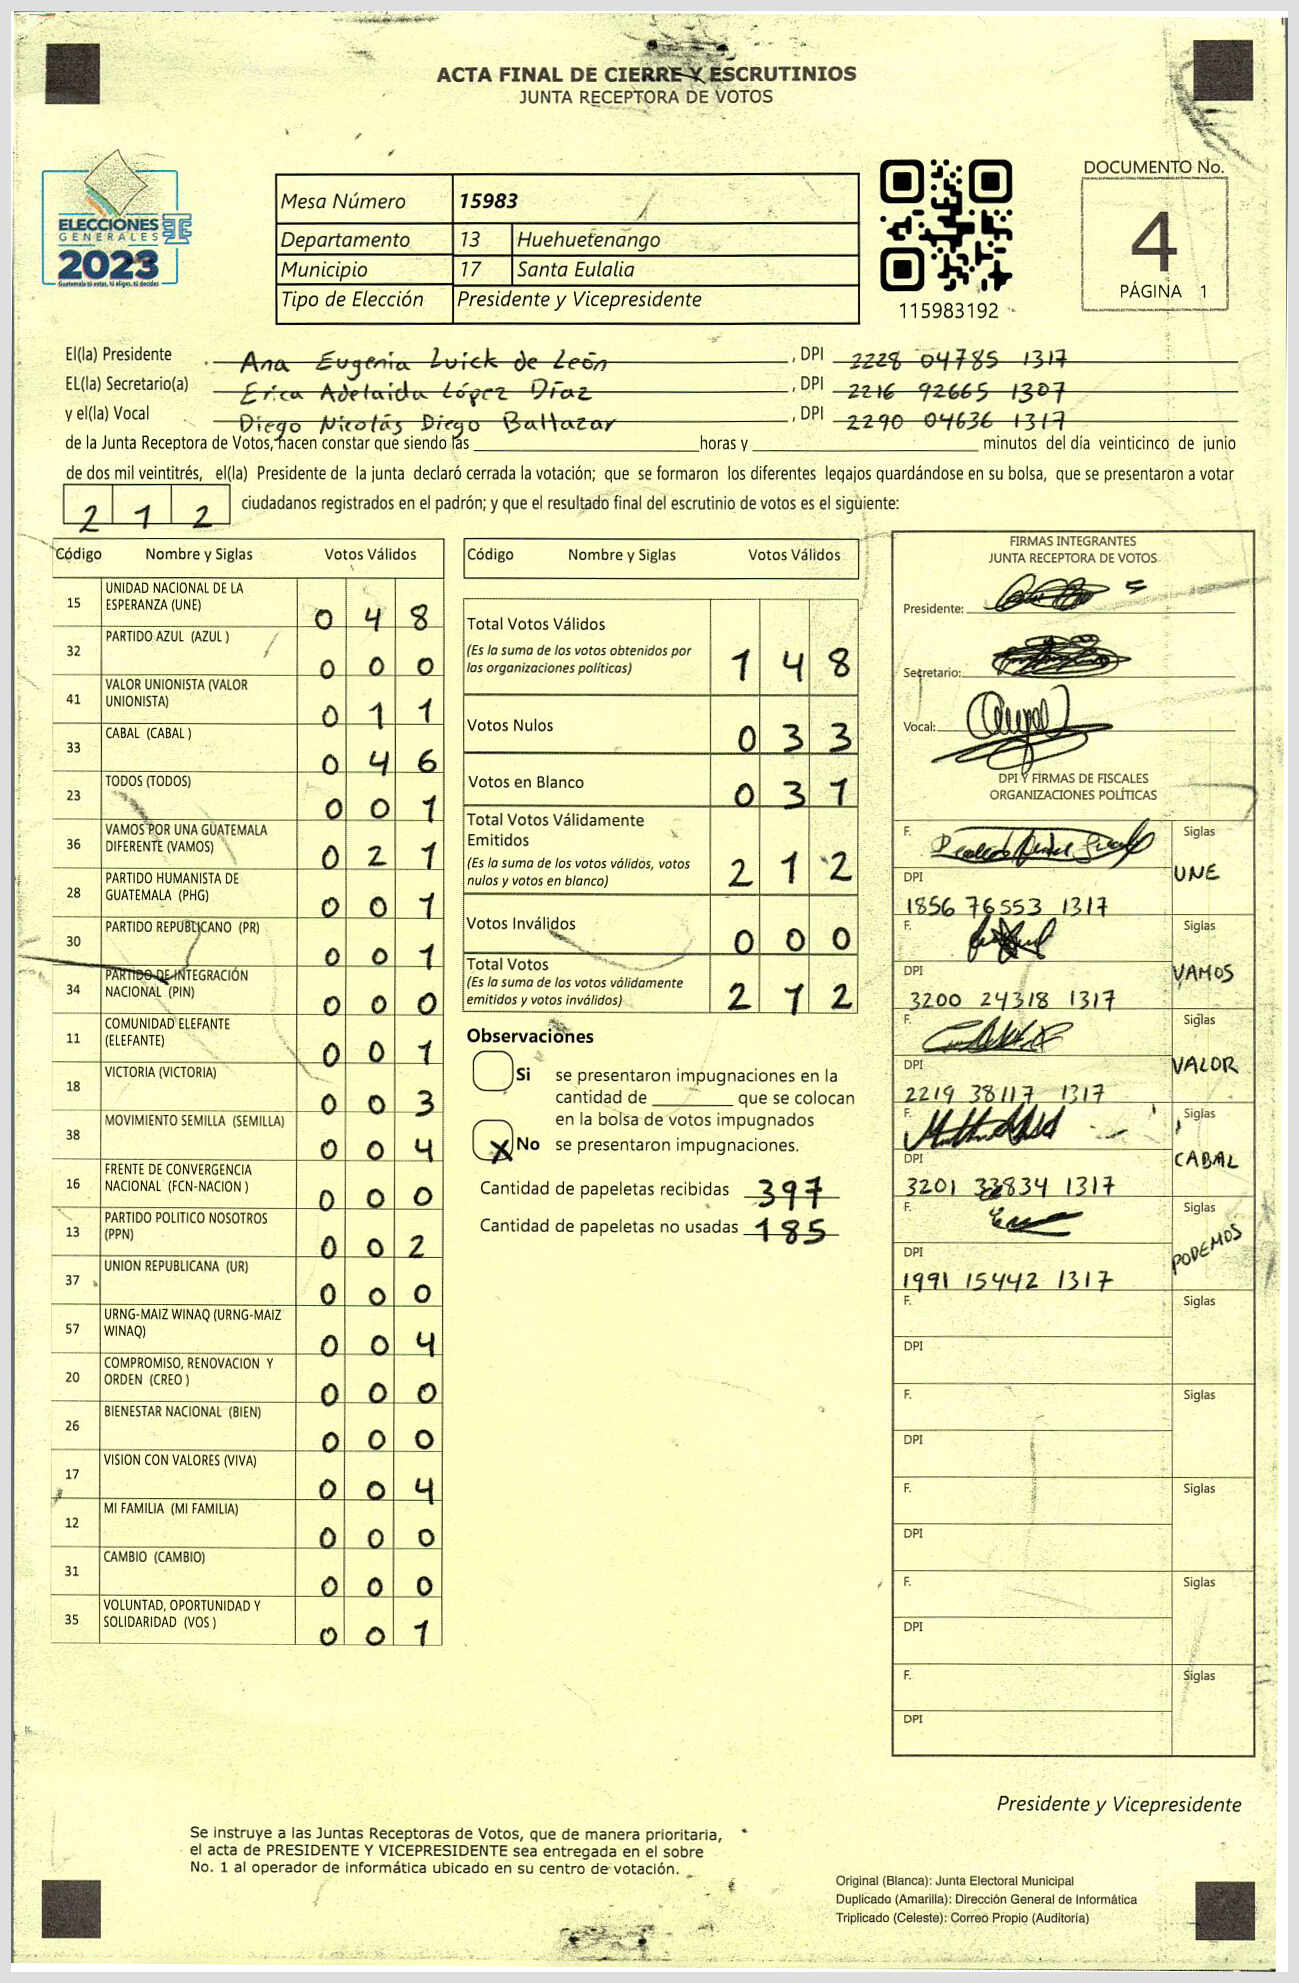 ACTA FINAL DE CIERRE Y ESCRUTINIOS
JUNTA RECEPTORA DE VOTOS
ELECCIONES
GENERALES
2023
Guatemala tú votas, tú eliges, tú decides
Mesa Número 15983
Departamento 13 Huehuetenango
Municipio 17 Santa Eulalia
Tipo de Elección Presidente y Vicepresidente
115983192
DOCUMENTO No.
4
PÁGINA 1
El(la) Presidente Ana Eugenia Luick de León, DPI 2228 04785 1317
EL(la) Secretario(a) Erica Adelaida López Díaz, DPI 2216 92665 1307
y el(la) Vocal Diego Nicolás Diego Baltazar, DPI 2290 04636 1317
de la Junta Receptora de Votos, hacen constar que siendo las horas y minutos del día veinticinco de junio
de dos mil veintitrés, el(la) Presidente de la junta declaró cerrada la votación; que se formaron los diferentes legajos quardándose en su bolsa, que se presentaron a votar
212 ciudadanos registrados en el padrón; y que el resultado final del escrutinio de votos es el siguiente:
Código Nombre y Siglas Votos Válidos
15 UNIDAD NACIONAL DE LA ESPERANZA (UNE) 048
32 PARTIDO AZUL (AZUL ) 000
41 VALOR UNIONISTA (VALOR UNIONISTA) 011
33 CABAL (CABAL ) 046
23 TODOS (TODOS) 001
36 VAMOS POR UNA GUATEMALA DIFERENTE (VAMOS) 021
28 PARTIDO HUMANISTA DE GUATEMALA (PHG) 001
30 PARTIDO REPUBLICANO (PR) 001
34 PARTIDO DE INTEGRACIÓN NACIONAL (PIN) 000
11 COMUNIDAD ELEFANTE (ELEFANTE) 001
18 VICTORIA (VICTORIA) 003
38 MOVIMIENTO SEMILLA (SEMILLA) 004
16 FRENTE DE CONVERGENCIA NACIONAL (FCN-NACION ) 000
13 PARTIDO POLITICO NOSOTROS (PPN) 002
37 UNION REPUBLICANA (UR) 000
57 URNG-MAIZ WINAQ (URNG-MAIZ WINAQ) 004
20 COMPROMISO, RENOVACION Y ORDEN (CREO ) 000
26 BIENESTAR NACIONAL (BIEN) 000
17 VISION CON VALORES (VIVA) 004
12 MI FAMILIA (MI FAMILIA) 000
31 CAMBIO (CAMBIO) 000
35 VOLUNTAD, OPORTUNIDAD Y SOLIDARIDAD (VOS ) 001
Código Nombre y Siglas Votos Válidos
Total Votos Válidos 148
(Es la suma de los votos obtenidos por
las organizaciones políticas)
Votos Nulos 033
Votos en Blanco 031
Total Votos Válidamente
Emitidos 212
(Es la suma de los votos válidos, votos
nulos y votos en blanco)
Votos Inválidos 000
Total Votos 212
(Es la suma de los votos válidamente
emitidos y votos inválidos)
Observaciones
Si se presentaron impugnaciones en la
cantidad de que se colocan
en la bolsa de votos impugnados
X No se presentaron impugnaciones.
Cantidad de papeletas recibidas 397
Cantidad de papeletas no usadas 185
FIRMAS INTEGRANTES
JUNTA RECEPTORA DE VOTOS
Presidente:
Secretario:
Vocal:
DPI Y FIRMAS DE FISCALES
ORGANIZACIONES POLÍTICAS
F. Siglas
UNE
DPI
1856 76553 1317
F. Siglas
VAMOS
DPI
3200 24318 1317
F. Siglas
VALOR
DPI
2219 38117 1317
F. Siglas
CABAL
DPI
3201 33834 1317
F. Siglas
PODEMOS
DPI
1991 15442 1317
F. Siglas
DPI
F. Siglas
DPI
F. Siglas
DPI
F. Siglas
DPI
F. Siglas
DPI
Presidente y Vicepresidente
Se instruye a las Juntas Receptoras de Votos, que de manera prioritaria,
el acta de PRESIDENTE Y VICEPRESIDENTE sea entregada en el sobre
No. 1 al operador de informática ubicado en su centro de votación.
Original (Blanca): Junta Electoral Municipal
Duplicado (Amarilla): Dirección General de Informática
Triplicado (Celeste): Correo Propio (Auditoría)